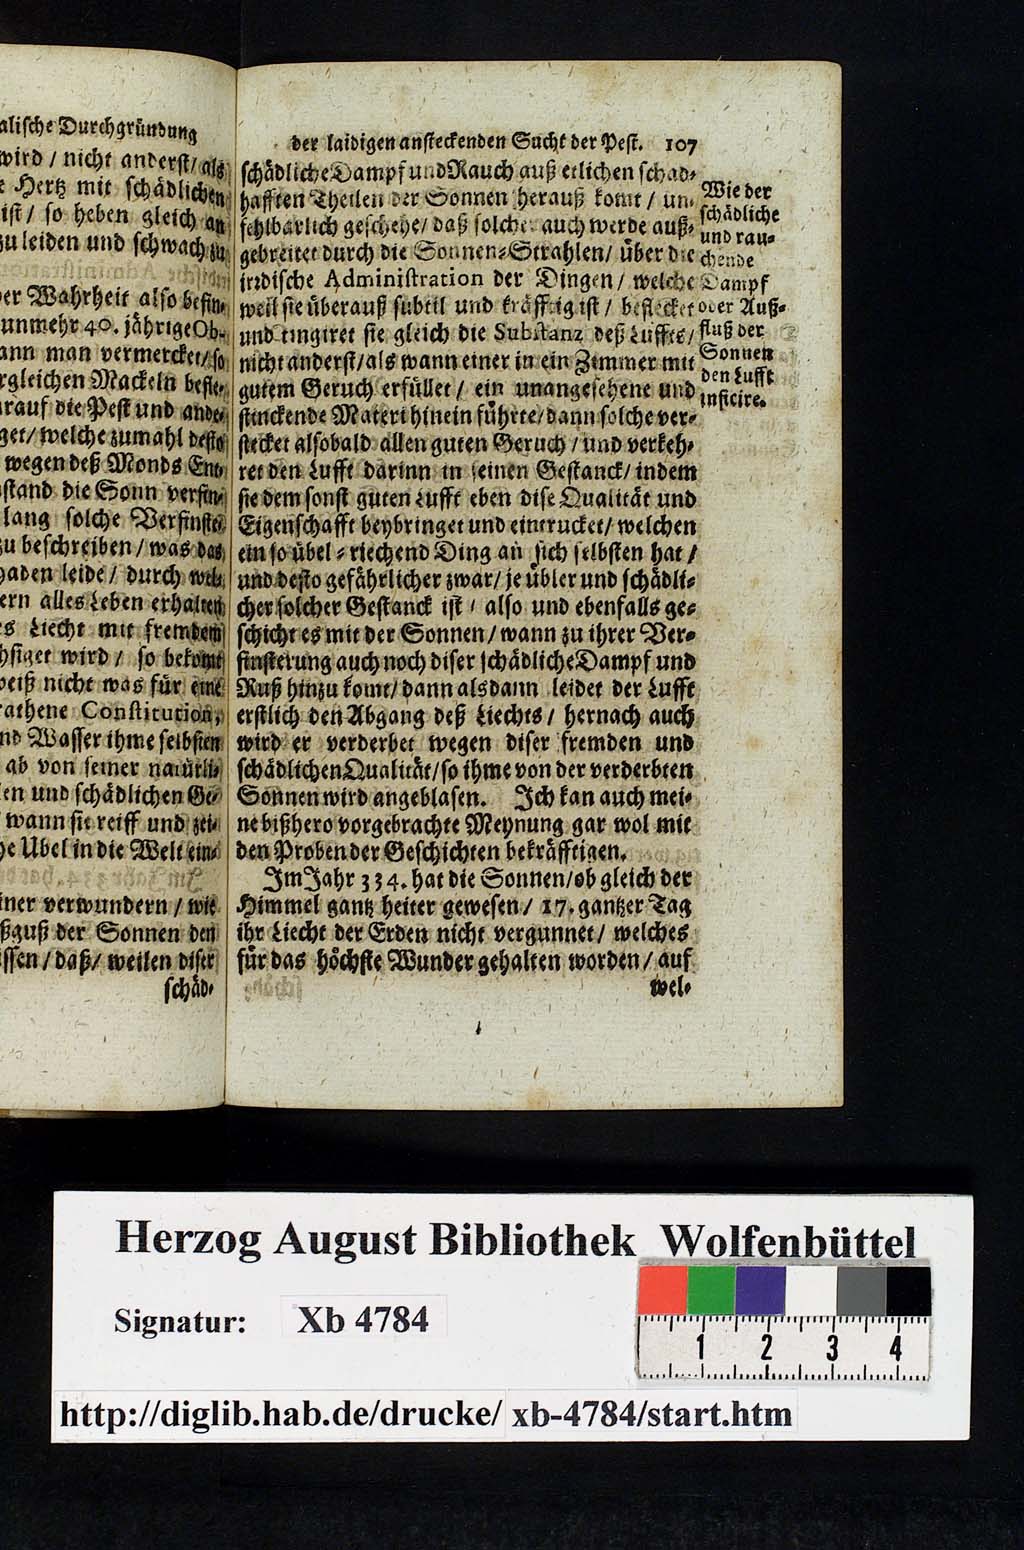 alische Durchgründung
wird / nicht anderst / als
Hertz mit schädlichen
ist / so heben gleich an
zu leiden und schwach zu
er Wahrheit also befin-
unmehr 40. jährige Ob-
ann man vermercket / so
rgleichen Mackeln befle-
rauf die Pest und ande-
get / welche zumahl desto
wegen deß Monds Ent-
stand die Sonn verfin-
lang solche Verfinste-
zu beschreiben / was das
haden leide / durch wel-
ern alles Leben erhalten
es Liecht mit fremdem
hsiget wird / so bekomt
weiß nicht was für eine
rathene Constitution,
nd Wasser ihme selbsten
ab von seiner natürli-
en und schädlichen Ge-
wann sie reiff und zei-
he Übel in die Welt ein-
iner verwundern / wie
ßguß der Sonnen den
issen / daß / weilen diser
schäd-
der laidigen ansteckenden Sucht der Pest. 107
schädliche Dampf und Rauch auß etlichen schad-
hafften Theilen der Sonnen herauß komt / un-
fehlbarlich geschehe / daß solcher auch werde auß-
gebreitet durch die Sonnen-Strahlen / über die
irrdische Administration der Dingen / welche
weil sie überauß subtil und kräfftig ist / beflecket
und tingiret sie gleich die Substanz deß Luffts /
nicht anderst / als wann einer in ein Zimmer mit
gutem Geruch erfüllet / ein unangesehene und
stinckende Materi hinein führte / dann solche ver-
stecket alsobald allen guten Geruch / und verkeh-
ret den Lufft darinn in seinen Gestanck / indem
sie dem sonst guten Lufft eben dise Qualität und
Eigenschafft beybringet und eintrucket / welchen
ein so übel-riechend Ding an sich selbsten hat /
und desto gefährlicher zwar / je übler und schädli-
cher solcher Gestanck ist / also und ebenfalls ge-
schicht es mit der Sonnen / wann zu ihrer Ver-
finsterung auch noch diser schädliche Dampf und
Ruß hinzu komt / dann alsdann leidet der Lufft
erstlich den Abgang deß Liechts / hernach auch
wird er verderbet wegen diser fremden und
schädlichen Qualität / so ihme von der verderbten
Sonnen wird angeblasen. Ich kan auch mei-
ne bißhero vorgebrachte Meynung gar wol mit
den Proben der Geschichten bekräfftigen.
Im Jahr 334. hat die Sonnen / ob gleich der
Himmel gantz heiter gewesen / 17. gantzer Tag
ihr Liecht der Erden nicht vergunnet / welches
für das höchste Wunder gehalten worden / auf
wel-
Wie der
schädliche
und rau-
chende
Dampf
oder Auß-
fluß der
Sonnen
den Lufft
inficire.
Herzog August Bibliothek Wolfenbüttel
Signatur: Xb 4784
1 2 3 4
http://diglib.hab.de/drucke/ xb-4784/start.htm